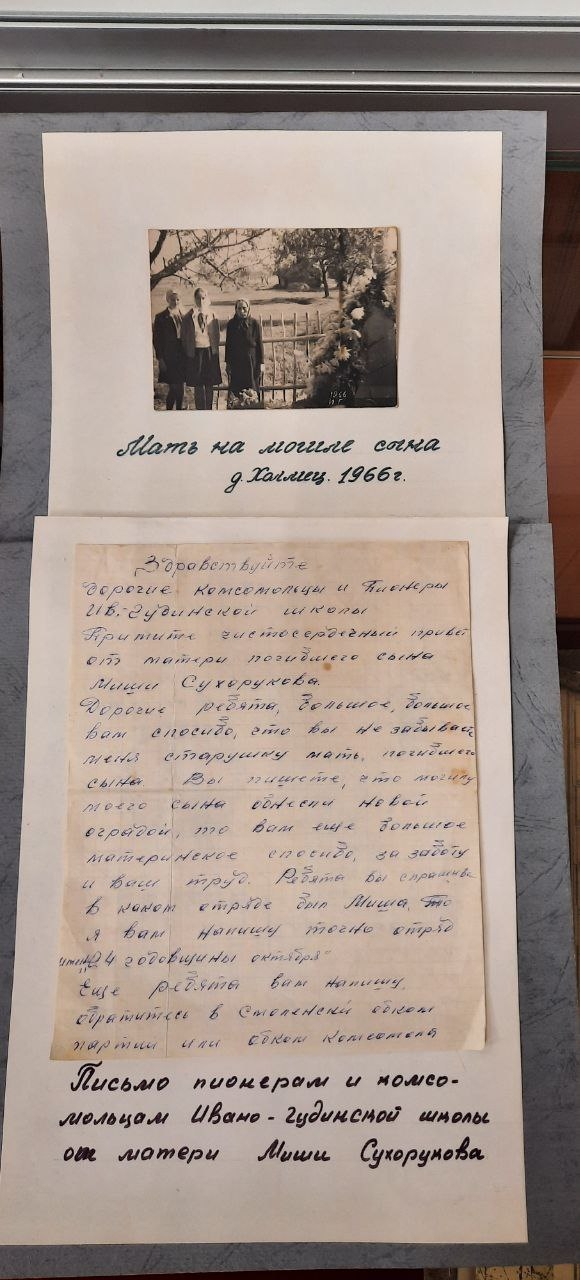 1966
Мать на могиле сына
д. Холмец. 1966 г.
Здравствуйте
Дорогие комсомольцы и Пионеры
Ив.-Гудинской школы
Примите чистосердечный привет
от матери погибшего сына
Миши Сухорукова.
Дорогие ребята, большое, большое
вам спосибо, что вы не забывайте
меня старушку мать, погибшего
сына. Вы пишете, что могилу
моего сына обнесли новой
оградой, то вам еще большое
материнское спосибо, за заботу
и ваш труд. Ребята вы спрашива
в каком отряде был Миша, то
я вам напишу точно отряд
имени „24 годовщины октября“
Еще ребята вам напишу,
обратитесь в Смоленский обком
партии или обком комсомола
Письмо пионерам и комсо-
мольцам Ивано-Гудинской школы
от матери Миши Сухорукова